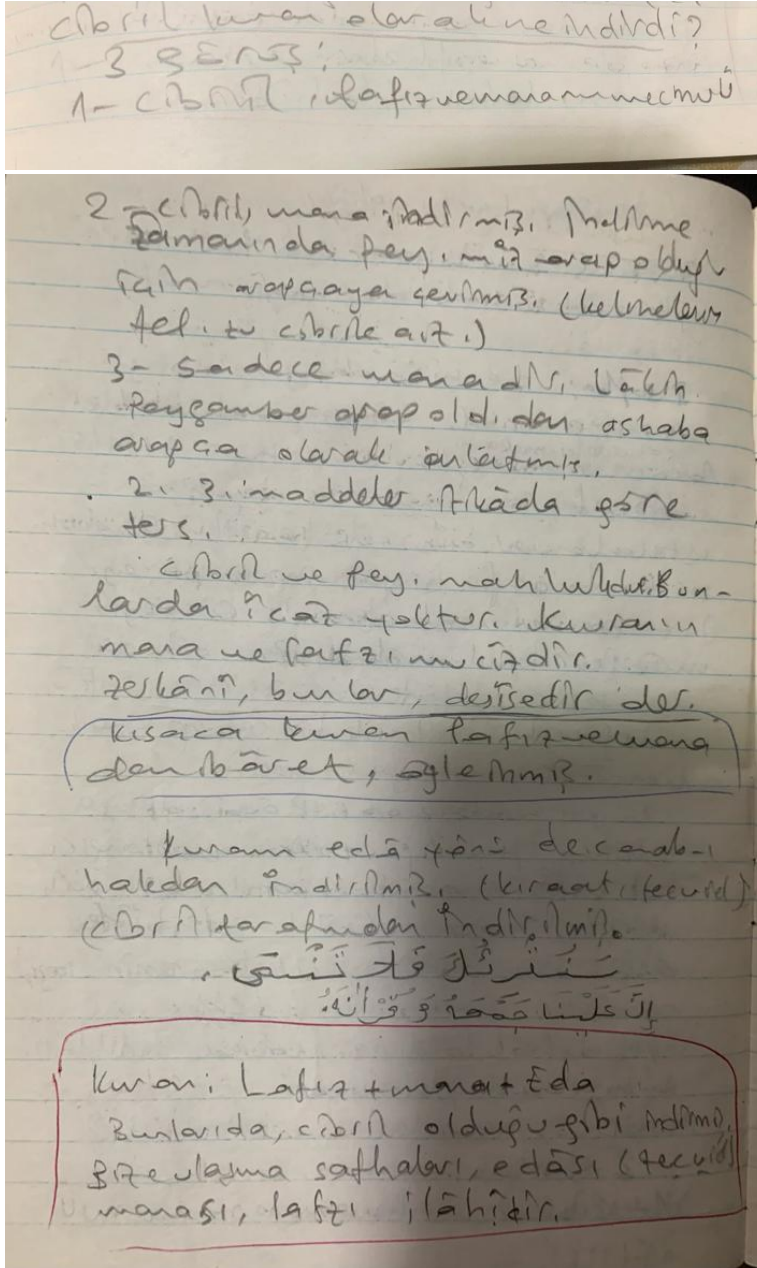 cibril kuranı olarak ne indirdi?
1-3 görüş:
1- Cibril, lafız ve mananın mecmuû
2- Cibril, mana indirmiş. İndirme
zamanında pey. miz arap olduğu
için arapçaya çevirmiş. (kelmelerin
tel. zu cibrile ait.)
3- Sadece manadır, Lâkin
Peygamber arap old.dan ashaba
arapça olarak anlatmış.
2. 3. maddeler itikâda göre
ters.
Cibril ve pey. mahlukdur. Bun-
larda îcaz yoktur. Kuranın
mana ve lafzı mucizdir.
Zerkânî, bunlar, desîsedir der.
Kısaca kuran lafız ve mana
dan ibâret, öyle inmiş.
Kuranın edâ yönü de cenab-ı
hakdan indirilmiş. (kıraat, tecvid)
Cibril tarafından indirilmiş.
سَنُقْرِئُكَ فَلَا تَنْسَى ،
إِنَّ عَلَيْنَا جَمْعَهُ وَ قُرْآنَهُ.
Kuran: Lafız + mana + Eda
Bunlarıda, cibril olduğu gibi indirmiş.
Bize ulaşma safhaları, edâsı (tecvid)
manası, lafzı ilâhîdir.